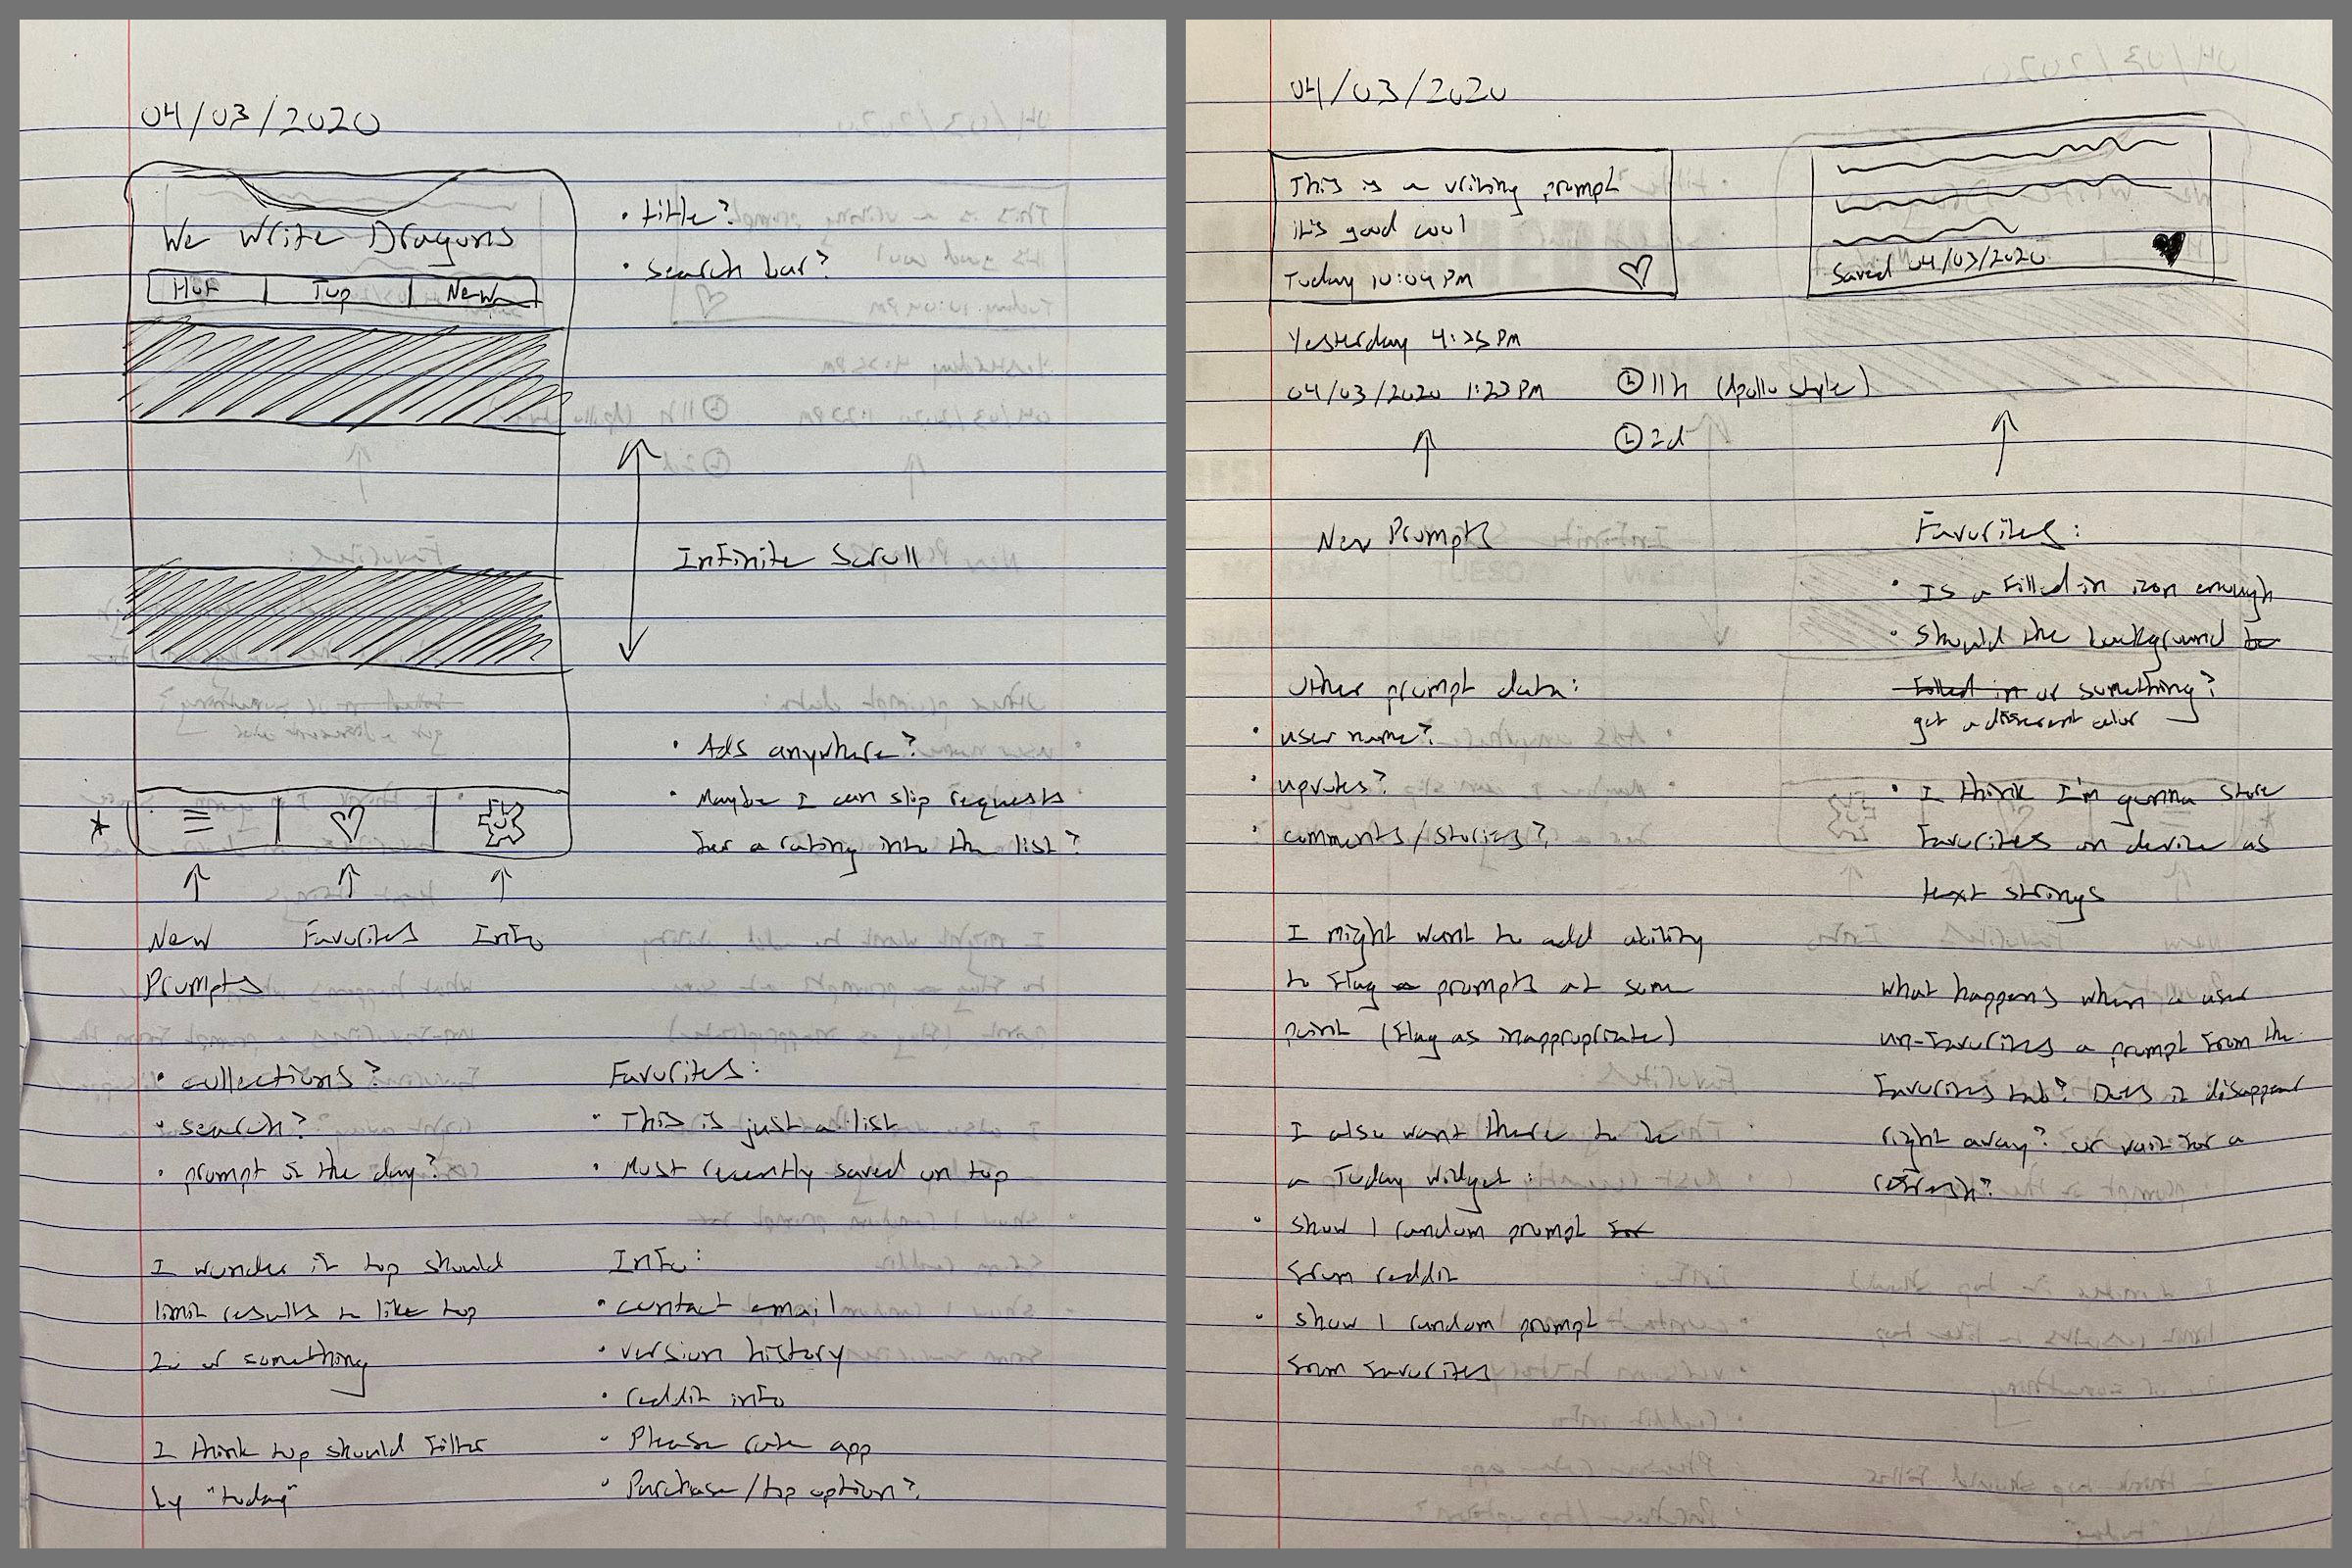 04/03/2020
We Write Dragons
Hot Top New
• title?
• search bar?
Infinite Scroll
• Ads anywhere?
• Maybe I can slip requests
for a rating into the list?
*
New Favorites Info
Prompts
• collections?
• search?
• prompt of the day?
I wonder if top should
limit results to like top
20 or something
I think top should filter
by "today"
Favorites:
• This is just a list
• Most recently saved on top
Info:
• contact email
• version history
• reddit info
• Please rate app
• Purchase/tip option?
04/03/2020
This is a writing prompt
it's good cool
Today 10:04 PM
Yesterday 4:25 PM
04/03/2020 1:23 PM
11h (Apollo style)
2d
New Prompts
Other prompt data:
• user name?
• upvotes?
• comments/stories?
I might want to add ability
to flag prompts at some
point (flag as inappropriate)
I also want there to be
a Today widget:
• show 1 random prompt for
from reddit
• show 1 random prompt
from favorites
Saved 04/03/2020
Favorites:
• Is a filled in icon enough
• Should the background be
filled in or something?
get a different color
• I think I'm gonna store
favorites on device as
text strings
what happens when a user
un-favorites a prompt from the
favorites tab? Does it disappear
right away? or wait for a
refresh?